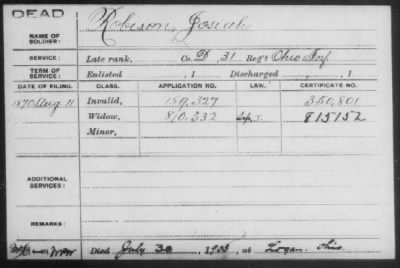 DEAD
NAME OF SOLDIER: Robison, Josiah
SERVICE: Late rank, Co. D, 31 Reg't Ohio Inf.
TERM OF SERVICE: Enlisted , 1 Discharged , 1
DATE OF FILING. CLASS. APPLICATION NO. LAW. CERTIFICATE NO.
1870 Aug 11 Invalid, 159,327 350,801
Widow, 810,332 815152
Minor,
ADDITIONAL SERVICES:
REMARKS:
Died July 30, 1903, at Logan, Ohio.